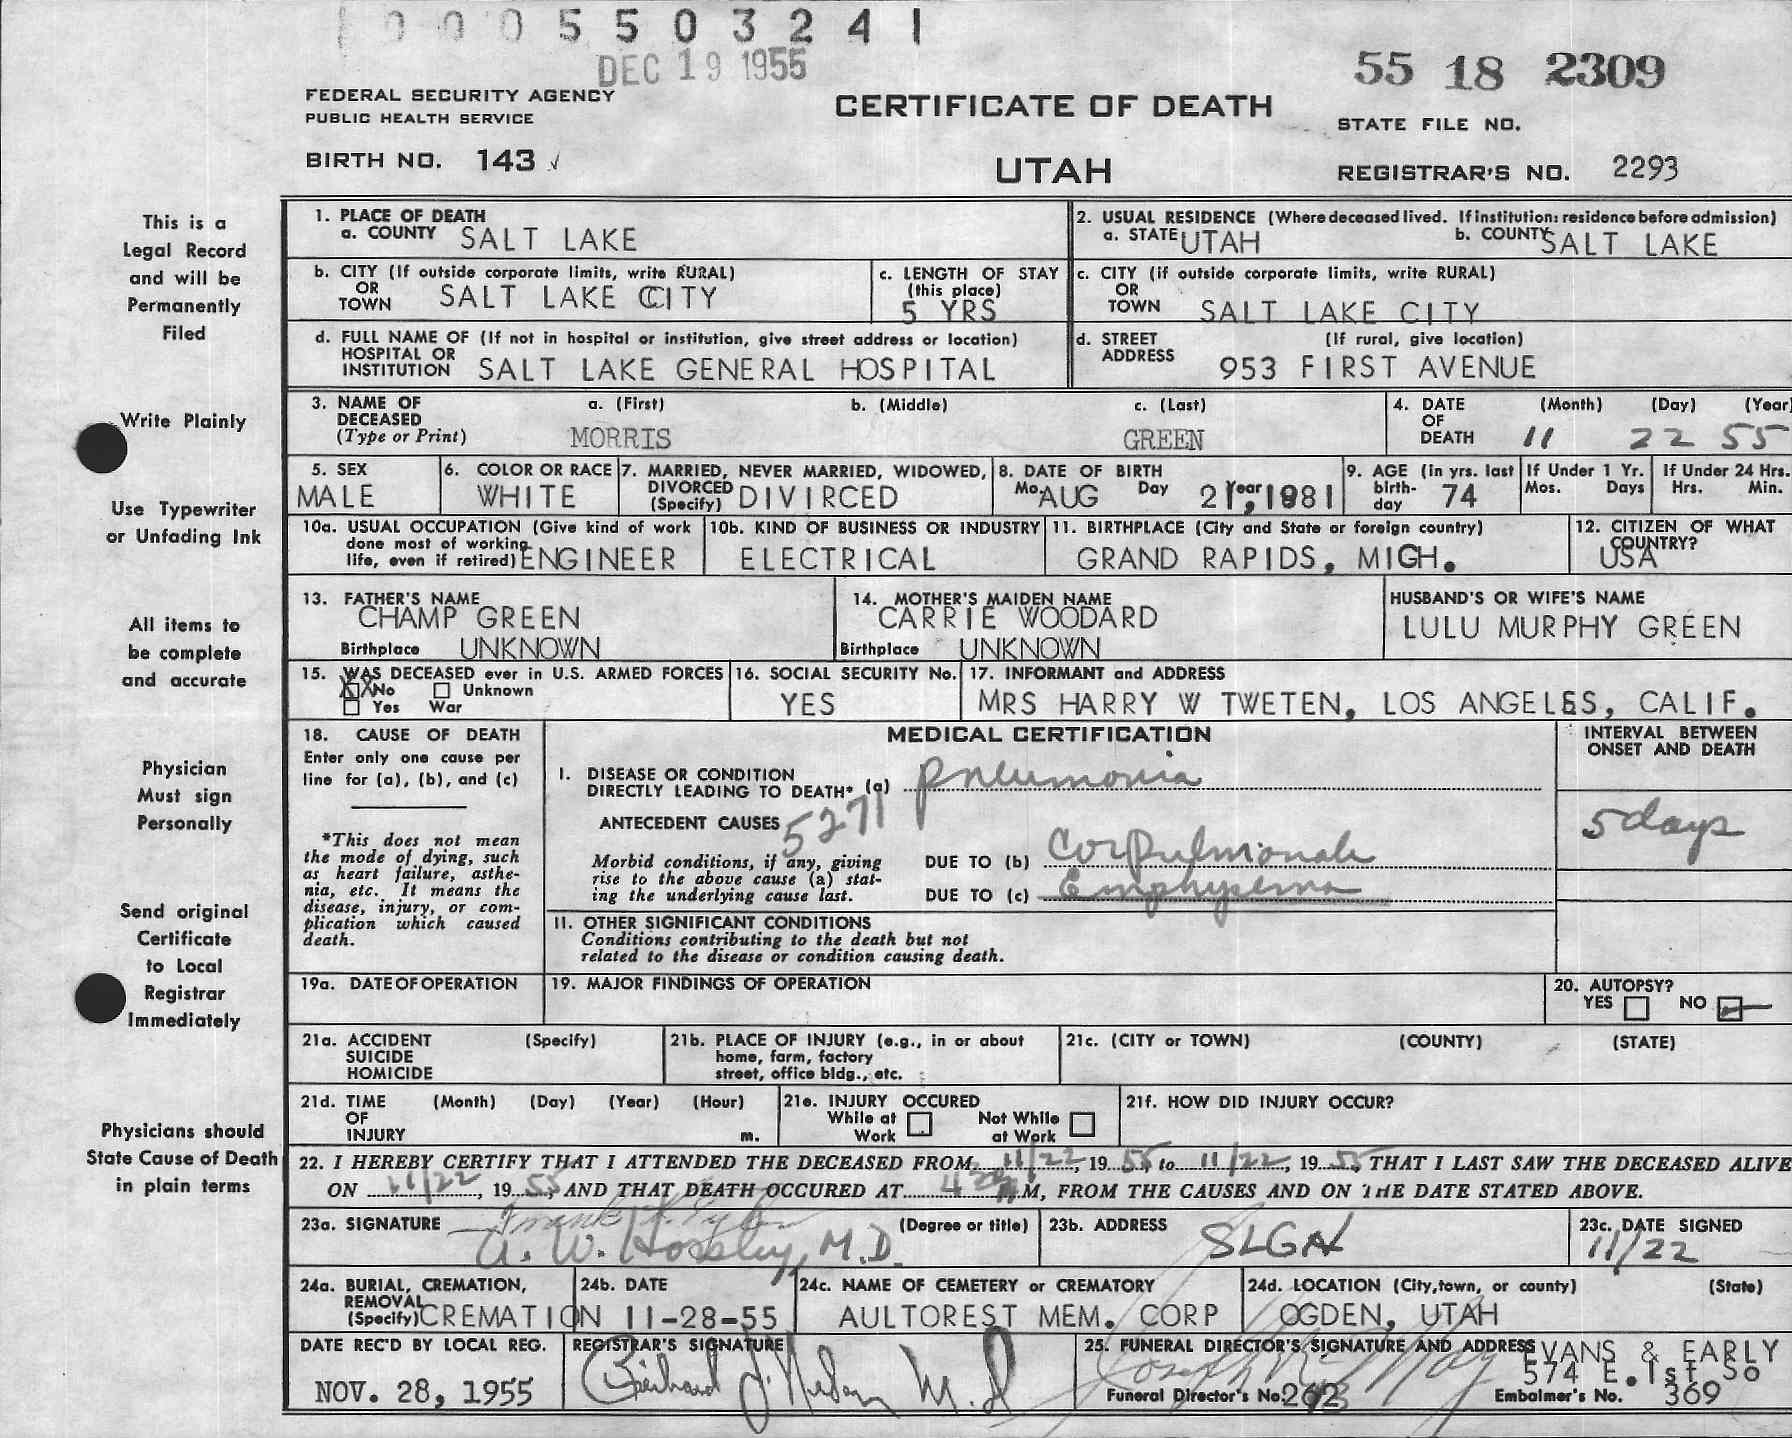 0005503241
DEC 19 1955
55 18 2309
FEDERAL SECURITY AGENCY
PUBLIC HEALTH SERVICE
CERTIFICATE OF DEATH
STATE FILE NO.
BIRTH NO. 143
UTAH
REGISTRAR'S NO. 2293
This is a
Legal Record
and will be
Permanently
Filed
Write Plainly
Use Typewriter
or Unfading Ink
All items to
be complete
and accurate
Physician
Must sign
Personally
Send original
Certificate
to Local
Registrar
Immediately
Physicians should
State Cause of Death
in plain terms
1. PLACE OF DEATH
a. COUNTY SALT LAKE
2. USUAL RESIDENCE (Where deceased lived. If institution: residence before admission)
a. STATE UTAH b. COUNTY SALT LAKE
b. CITY (If outside corporate limits, write RURAL)
OR
TOWN SALT LAKE CITY
c. LENGTH OF STAY
(this place)
5 YRS
c. CITY (if outside corporate limits, write RURAL)
OR
TOWN SALT LAKE CITY
d. FULL NAME OF (If not in hospital or institution, give street address or location)
HOSPITAL OR
INSTITUTION SALT LAKE GENERAL HOSPITAL
d. STREET (If rural, give location)
ADDRESS 953 FIRST AVENUE
3. NAME OF a. (First) b. (Middle) c. (Last)
DECEASED
(Type or Print) MORRIS GREEN
4. DATE (Month) (Day) (Year)
OF
DEATH 11 22 55
5. SEX
MALE
6. COLOR OR RACE
WHITE
7. MARRIED, NEVER MARRIED, WIDOWED,
DIVORCED
(Specify) DIVIRCED
8. DATE OF BIRTH
Mo. AUG Day 21, Year 1881
9. AGE (in yrs. last
birth-
day 74
If Under 1 Yr.
Mos. Days
If Under 24 Hrs.
Hrs. Min.
10a. USUAL OCCUPATION (Give kind of work
done most of working
life, even if retired) ENGINEER
10b. KIND OF BUSINESS OR INDUSTRY
ELECTRICAL
11. BIRTHPLACE (City and State or foreign country)
GRAND RAPIDS, MICH.
12. CITIZEN OF WHAT
COUNTRY?
USA
13. FATHER'S NAME
CHAMP GREEN
Birthplace UNKNOWN
14. MOTHER'S MAIDEN NAME
CARRIE WOODARD
Birthplace UNKNOWN
HUSBAND'S OR WIFE'S NAME
LULU MURPHY GREEN
15. WAS DECEASED ever in U.S. ARMED FORCES
XX No Unknown
Yes War
16. SOCIAL SECURITY No.
YES
17. INFORMANT and ADDRESS
MRS HARRY W TWETEN, LOS ANGELES, CALIF.
18. CAUSE OF DEATH
Enter only one cause per
line for (a), (b), and (c)
*This does not mean
the mode of dying, such
as heart failure, asthe-
nia, etc. It means the
disease, injury, or com-
plication which caused
death.
MEDICAL CERTIFICATION
INTERVAL BETWEEN
ONSET AND DEATH
I. DISEASE OR CONDITION
DIRECTLY LEADING TO DEATH* (a) Pneumonia
5 days
ANTECEDENT CAUSES 5271
Morbid conditions, if any, giving
rise to the above cause (a) stat-
ing the underlying cause last.
DUE TO (b) Cor Pulmonale
DUE TO (c) Emphysema
II. OTHER SIGNIFICANT CONDITIONS
Conditions contributing to the death but not
related to the disease or condition causing death.
19a. DATE OF OPERATION
19. MAJOR FINDINGS OF OPERATION
20. AUTOPSY?
YES NO
21a. ACCIDENT (Specify)
SUICIDE
HOMICIDE
21b. PLACE OF INJURY (e.g., in or about
home, farm, factory
street, office bldg., etc.
21c. (CITY or TOWN) (COUNTY) (STATE)
21d. TIME (Month) (Day) (Year) (Hour)
OF
INJURY m.
21e. INJURY OCCURED
While at Work Not While at Work
21f. HOW DID INJURY OCCUR?
22. I HEREBY CERTIFY THAT I ATTENDED THE DECEASED FROM 11/22, 19 55, to 11/22, 19 55, THAT I LAST SAW THE DECEASED ALIVE
ON 11/22, 19 55, AND THAT DEATH OCCURED AT M, FROM THE CAUSES AND ON THE DATE STATED ABOVE.
23a. SIGNATURE (Degree or title)
Frank
A. W. M.D.
23b. ADDRESS
SLGH
23c. DATE SIGNED
11/22
24a. BURIAL, CREMATION,
REMOVAL
(Specify) CREMATION
24b. DATE
11-28-55
24c. NAME OF CEMETERY or CREMATORY
AULTOREST MEM. CORP
24d. LOCATION (City, town, or county) (State)
OGDEN, UTAH
DATE REC'D BY LOCAL REG.
NOV. 28, 1955
REGISTRAR'S SIGNATURE
M.D
25. FUNERAL DIRECTOR'S SIGNATURE AND ADDRESS
Joseph
EVANS & EARLY
574 E. 1st So
Funeral Director's No. 262
Embalmer's No. 369